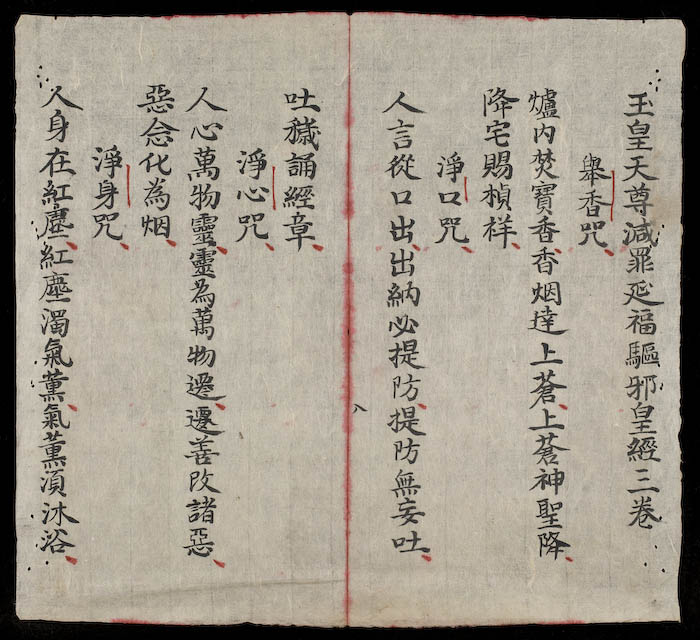 玉皇天尊減罪延福驅邪皇經三卷
舉香咒
爐內焚寶香香烟達上蒼上蒼神聖降
降宅賜楨祥
淨口咒
人言從口出出納必提防提防無妄吐
吐穢誦經章
淨心咒
人心萬物靈靈為萬物遷遷善改諸惡
惡念化為烟
淨身咒
人身在紅塵紅塵濁氣薰氣薰須沐浴